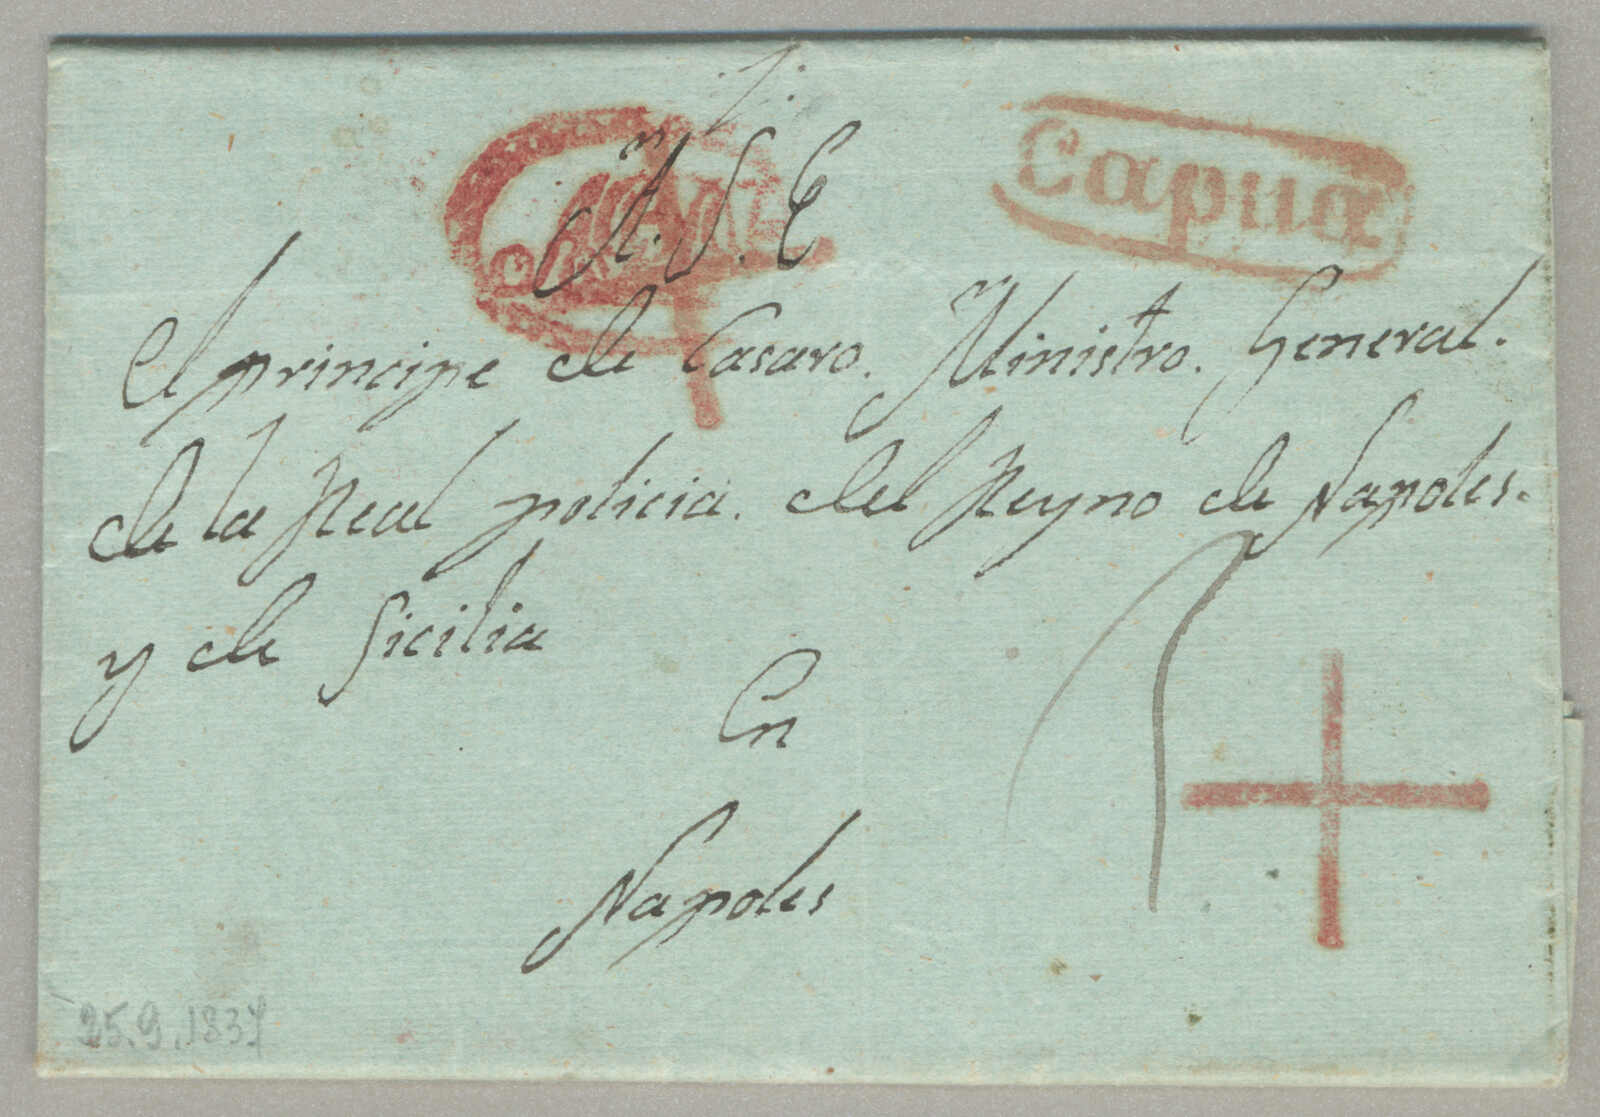 A.S.E
Capua
El principe de Casaro. Ministro. General.
de la Real policia. del Reyno de Napoles.
y de Sicilia
En
Napoles
25.9.1837